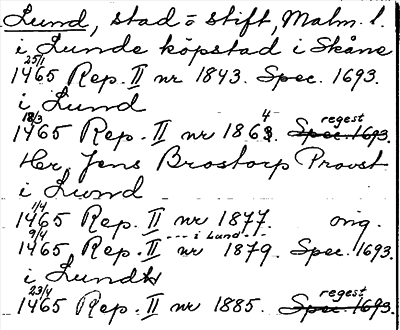 Lund, stad o stift, Malm. l.
i Lunde köpstad i Skåne
25/1
1465 Rep. II nr 1843. Spec. 1693.
i Lund
18/3 4 regest
1465 Rep. II nr 1863. Spec. 1693.
Her Jens Brostorp Provst
i Lund
1/4
1465 Rep. II nr 1877. orig.
9/4 --- i Lund ---
1465 Rep. II nr 1879. Spec. 1693.
i Lund
23/4 regest
1465 Rep. II nr 1885. Spec. 1693.